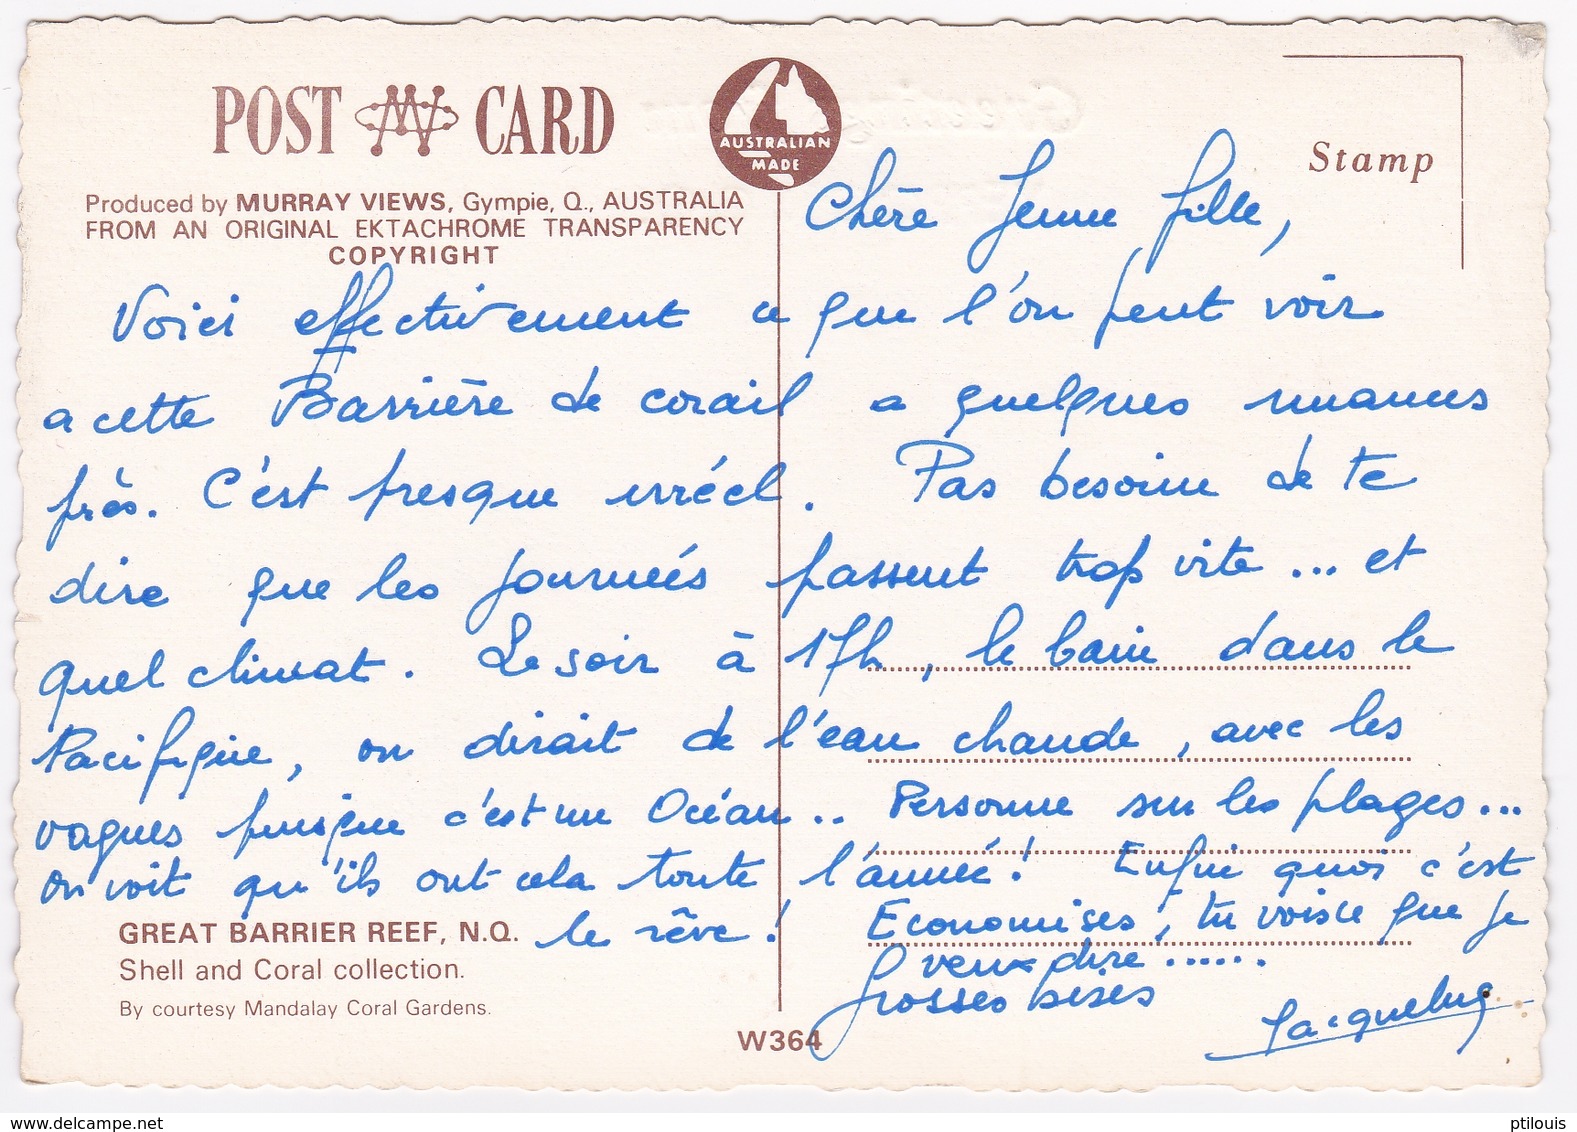 POST CARD
AUSTRALIAN
MADE
Stamp
Produced by MURRAY VIEWS, Gympie, Q., AUSTRALIA
FROM AN ORIGINAL EKTACHROME TRANSPARENCY
COPYRIGHT
Chère Jeune fille,
Voici effectivement ce que l'on peut voir
a cette Barrière de corail a quelques nuances
près. C'est presque irréel. Pas besoin de te
dire que les journées passent trop vite... et
quel climat. Le soir à 17h, le bain dans le
Pacifique, on dirait de l'eau chaude, avec les
vagues puisque c'est un Océan.. Personne sur les plages...
on voit qu'ils ont cela toute l'année! Enfin quoi c'est
le rêve! Economises, tu vois ce que je
veux dire......
Grosses bises
Jacqueline
GREAT BARRIER REEF, N.Q.
Shell and Coral collection.
By courtesy Mandalay Coral Gardens.
W364
www.delcampe.net
ptilouis